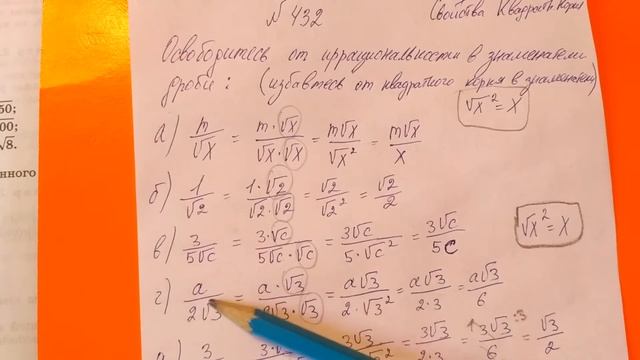 № 432
Свойства Квадратн. Корня
Освободитесь от иррациональности в знаменателе
дроби: (избавтесь от квадратного корня в знаменателе)
√x² = x
50;
00;
√8.
нного
а) m/√x = m·√x/√x·√x = m√x/√x² = m√x/x
б) 1/√2 = 1·√2/√2·√2 = √2/√2² = √2/2
в) 3/5√c = 3·√c/5√c·√c = 3√c/5·√c² = 3√c/5c
√x² = x
г) a/2√3 = a·√3/2√3·√3 = a√3/2·√3² = a√3/2·3 = a√3/6
3√3 = 3√3/2·3 = 3√3/6 :3 = √3/2